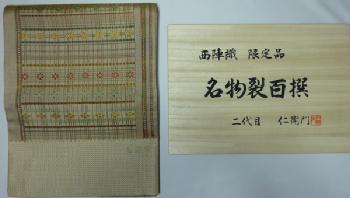 西陣織 限定品
名物裂百撰
二代目 仁衛門